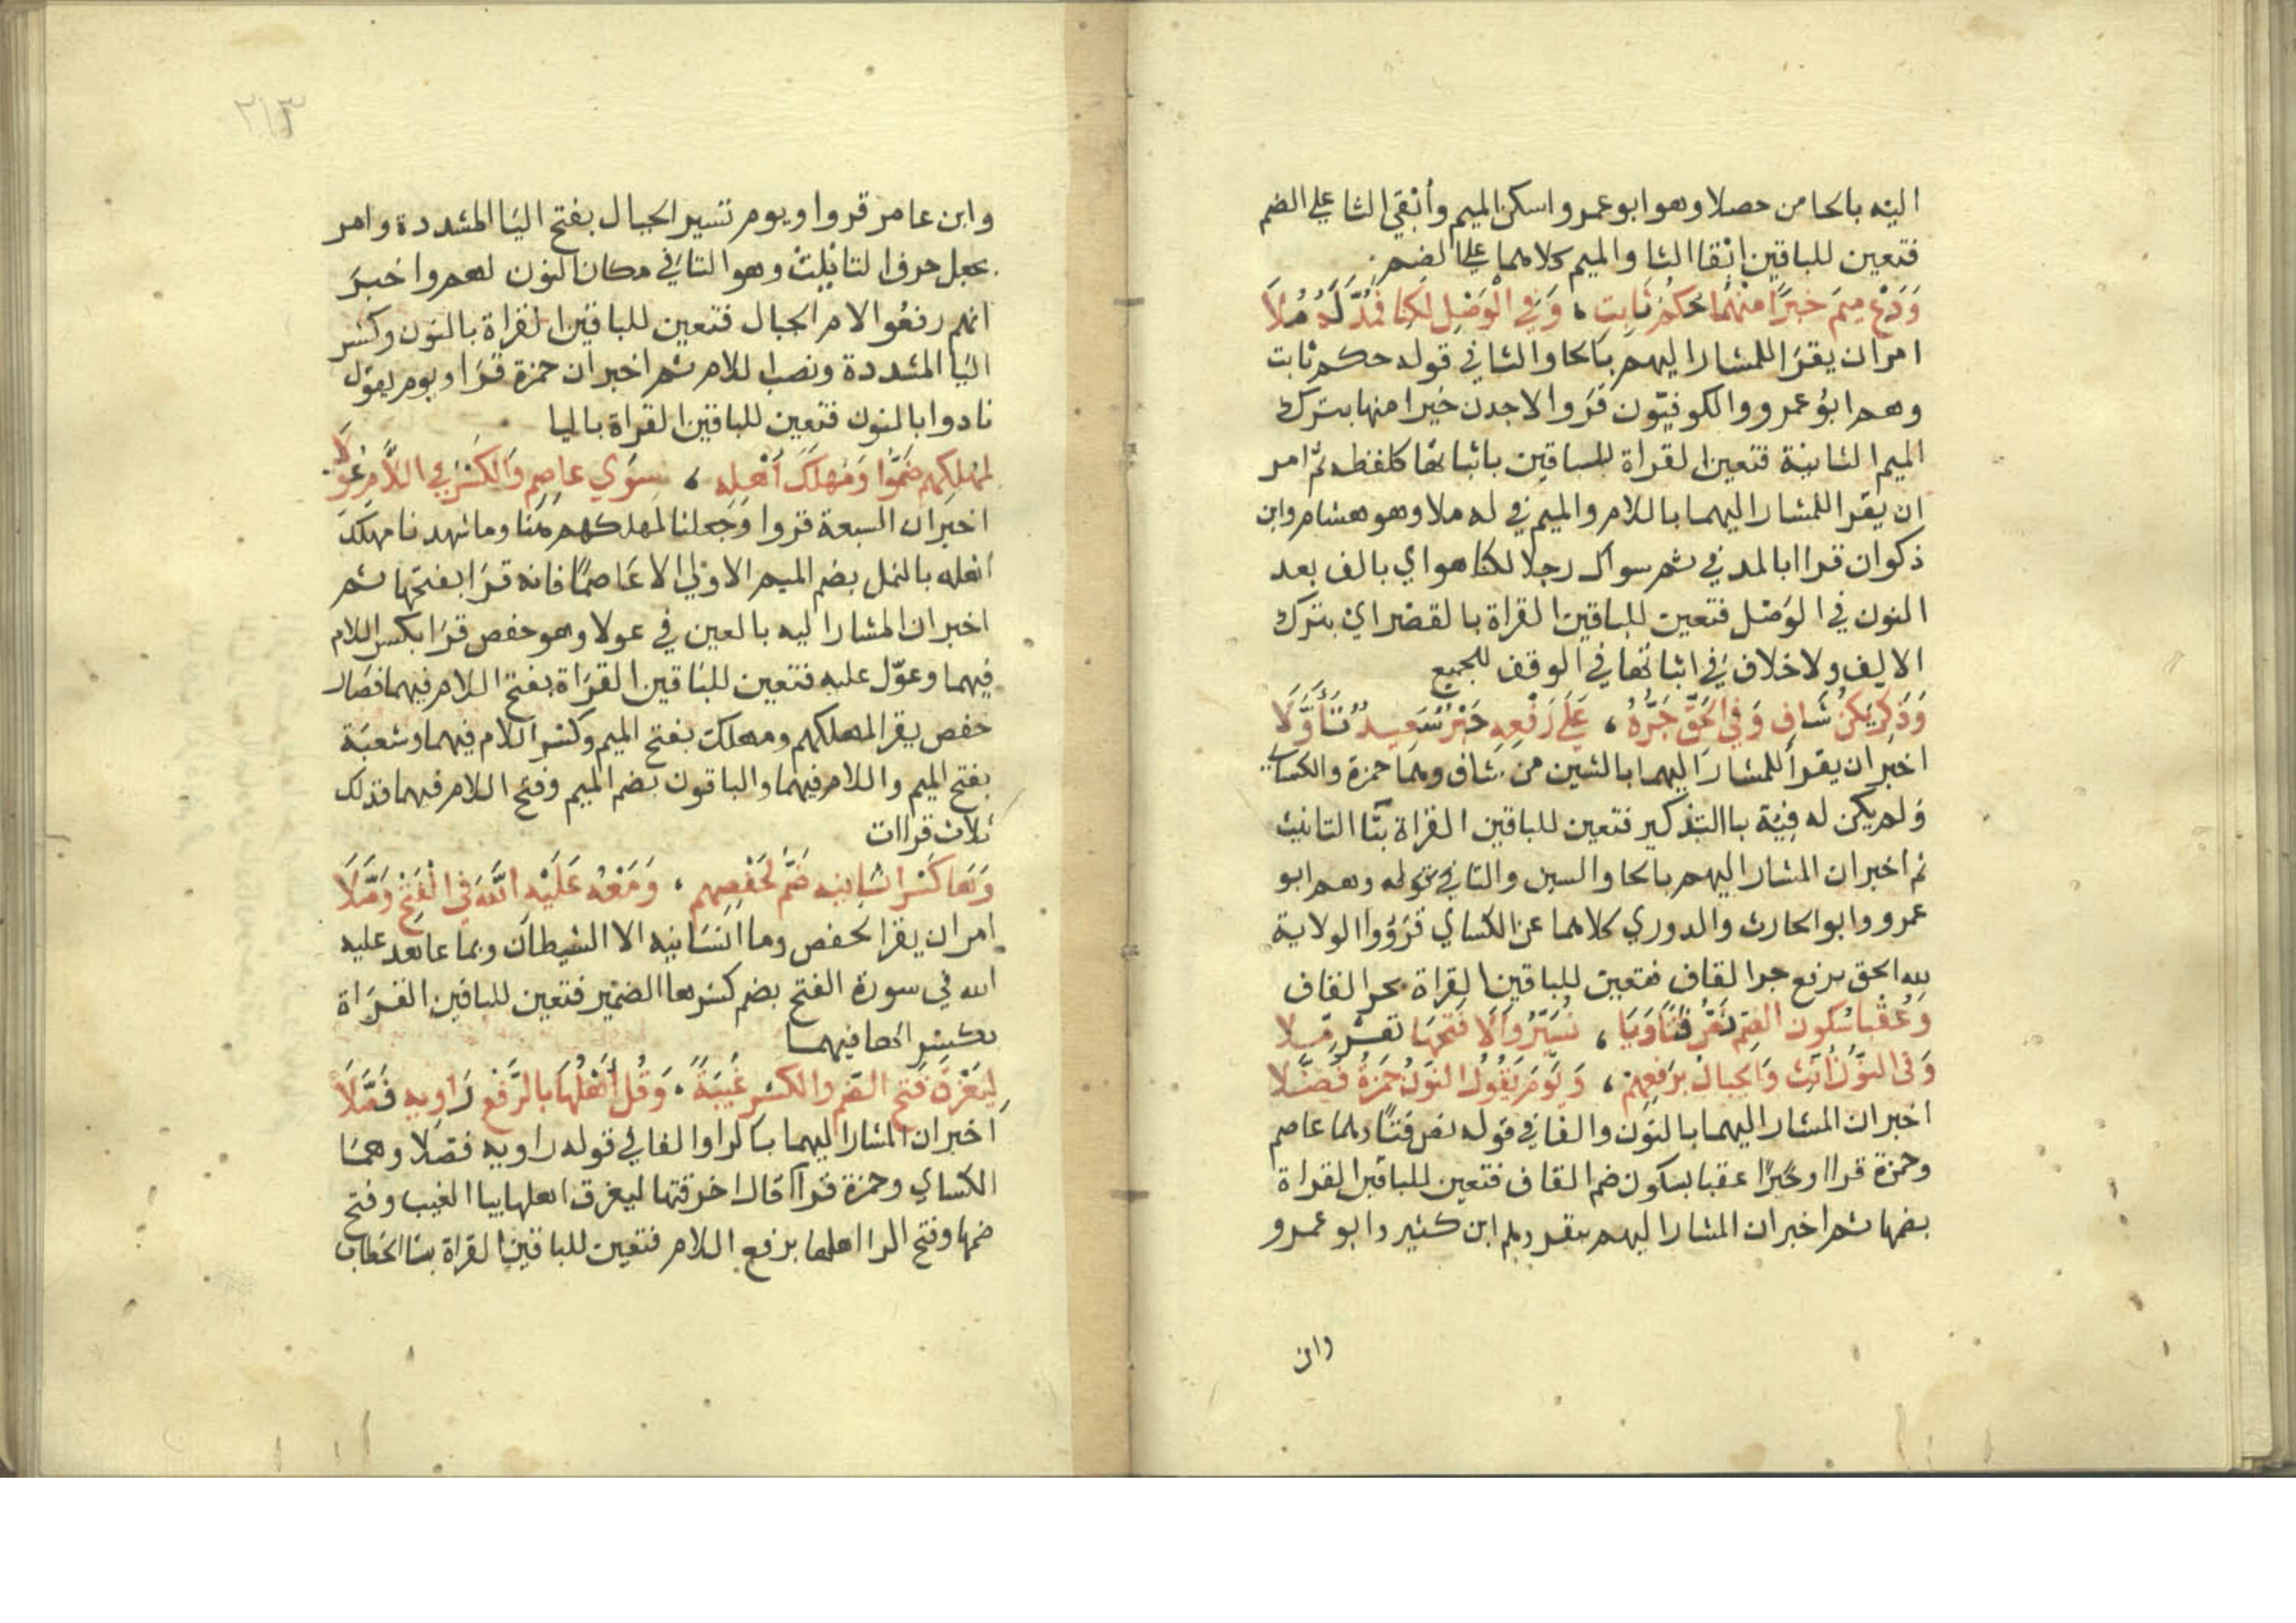 اليه بالحا من حصلا وهو ابو عمرو اسكن الميم وأبقي الثا علي الضم
فتعين للباقين ابقا الثا والميم كلاهما علي الضم
وَدَعْ مِيمَ خَيْرًا مِنْهُمَا حُكْمُ ثَابِتٍ ، وَفِي الْوَصْلِ لَكِنَّا فَمُدَّ لَهُ مُلَا
امر ان يقرا للمشار اليهم بالحا والثا في قوله حكم ثابت
وهم ابو عمرو والكوفيون قروا لاجدن خيرا منها بترك
الميم الثانية فتعين القراة للباقين باثباتها كلفظه ثم امر
ان يقرا للمشار اليهما باللام والميم في له ملا وهو هشام وابن
ذكوان قراا بالمد في ثم سواك رجلا لكنا هو اي بالف بعد
النون في الوصل فتعين للباقين القراة بالقصر اي بترك
الالف ولا خلاف في اثباتها في الوقف للجميع
وَذَكِّرْ يَكُنْ شَافٍ وَفِي الحَقِّ جَرُّهُ ، عَلَي رَفْعِهِ حَبْرٌ سَعِيدٌ تَأَوَّلَا
اخبر ان يقرا للمشار اليهما بالشين من شاف وهما حمزة والكساي
ولم يكن له فية بالتذكير فتعين للباقين القراة بتا التانيث
ثم اخبر ان المشار اليهم بالحا والسين والتا في قوله وهم ابو
عمرو وابو الحارث والدوري كلاهما عن الكساي قرؤوا الولاية
لله الحق برفع جر القاف فتعين للباقين القراة بجر القاف
وَعُقْبًا سُكُونُ الضَّمِّ نَصُّ فَتًي وَيَا ، نُسَيِّرُ وَالَا فَتْحَهَا نفر ملا
وَفِي النُّونِ أَنِّثْ وَالجِبَالُ بِرَفْعِهِمْ ، وَيَوْمَ يَقُولُ النُّونُ حَمْزَةُ فَضَّلَا
اخبر ان المشار اليهما بالنون والفا في قوله نص فتا وهما عاصم
وحمزة قراا وخيرا عقبا بسكون ضم القاف فتعين للباقين القراة
بضمها ثم اخبر ان المشار اليهم بنفر وهم ابن كثير وابو عمرو
وابن
٢١٣
وابن عامر قروا ويوم تسير الجبال بفتح اليا المشددة وامر
بجعل حرف التانيث وهو التا في مكان النون لهم واخبر
انهم رفعوا لام الجبال فتعين للباقين القراة بالنون وكسر
اليا المشددة ونصب اللام ثم اخبر ان حمزة قرا ويوم نقول
نادوا بالنون فتعين للباقين القراة باليا
لمَهْلِكِهِمْ ضَمُّوا وَمَهْلِكَ أَهْلِهِ ، سِوَي عَاصِمٍ وَالكَسْرُ فِي اللَّامِ عُوِّلَا
اخبر ان السبعة قروا وجعلنا لمهلكهم هنا وما شهدنا مهلك
اهله بالنمل بضم الميم الاولي الا عاصما فانه قرا بفتحها ثم
اخبر ان المشار اليه بالعين في عولا وهو حفص قرا بكسر اللام
فيهما وعوّل عليه فتعين للباقين القراة بفتح اللام فيهما فصار
حفص يقرا لمهلكهم ومهلك بفتح الميم وكسر اللام فيهما وشعبة
بفتح الميم واللام فيهما والباقون بضم الميم وفتح اللام فيهما فذلك
ثلاث قراات
وَهَا كَسْرِ أَنْسَانِيهِ ضُمَّ لِحَفْصِهِم ، وَمَعْهُ عَلَيْهِ اللَّهَ فِي الْفَتْحِ وَصَّلَا
امر ان يقرا لحفص وما انسانيه الا الشيطان وبما عاهد عليه
الله في سورة الفتح بضم كسر ها الضمير فتعين للباقين القراة
بكسر الها فيهما
لِيَغْرَقَ فَتْحُ الضَّمِّ وَالكَسْرِ غَيْبَةً ، وَقُلْ أَهْلُهَا بِالرَّفْعِ رَاوِيهِ فَصَّلَا
اخبر ان المشار اليهما بالرا والفا في قوله راويه فصلا وهما
الكساي وحمزة قراا قال اخرقتها ليغرق اهلها بيا الغيب وفتح
ضمها وفتح الرا اهلها برفع اللام فتعين للباقين القراة بتا الخطاب